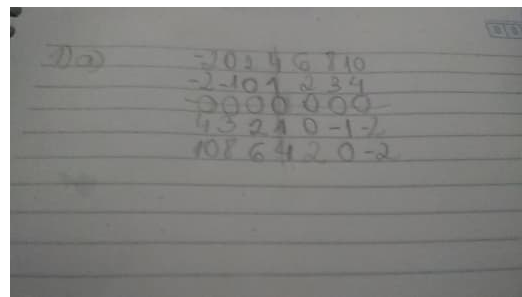 1) a) -2 0 2 4 6 8 10
-2 -1 0 1 2 3 4
0 0 0 0 0 0 0
4 3 2 1 0 -1 -2
10 8 6 4 2 0 -2